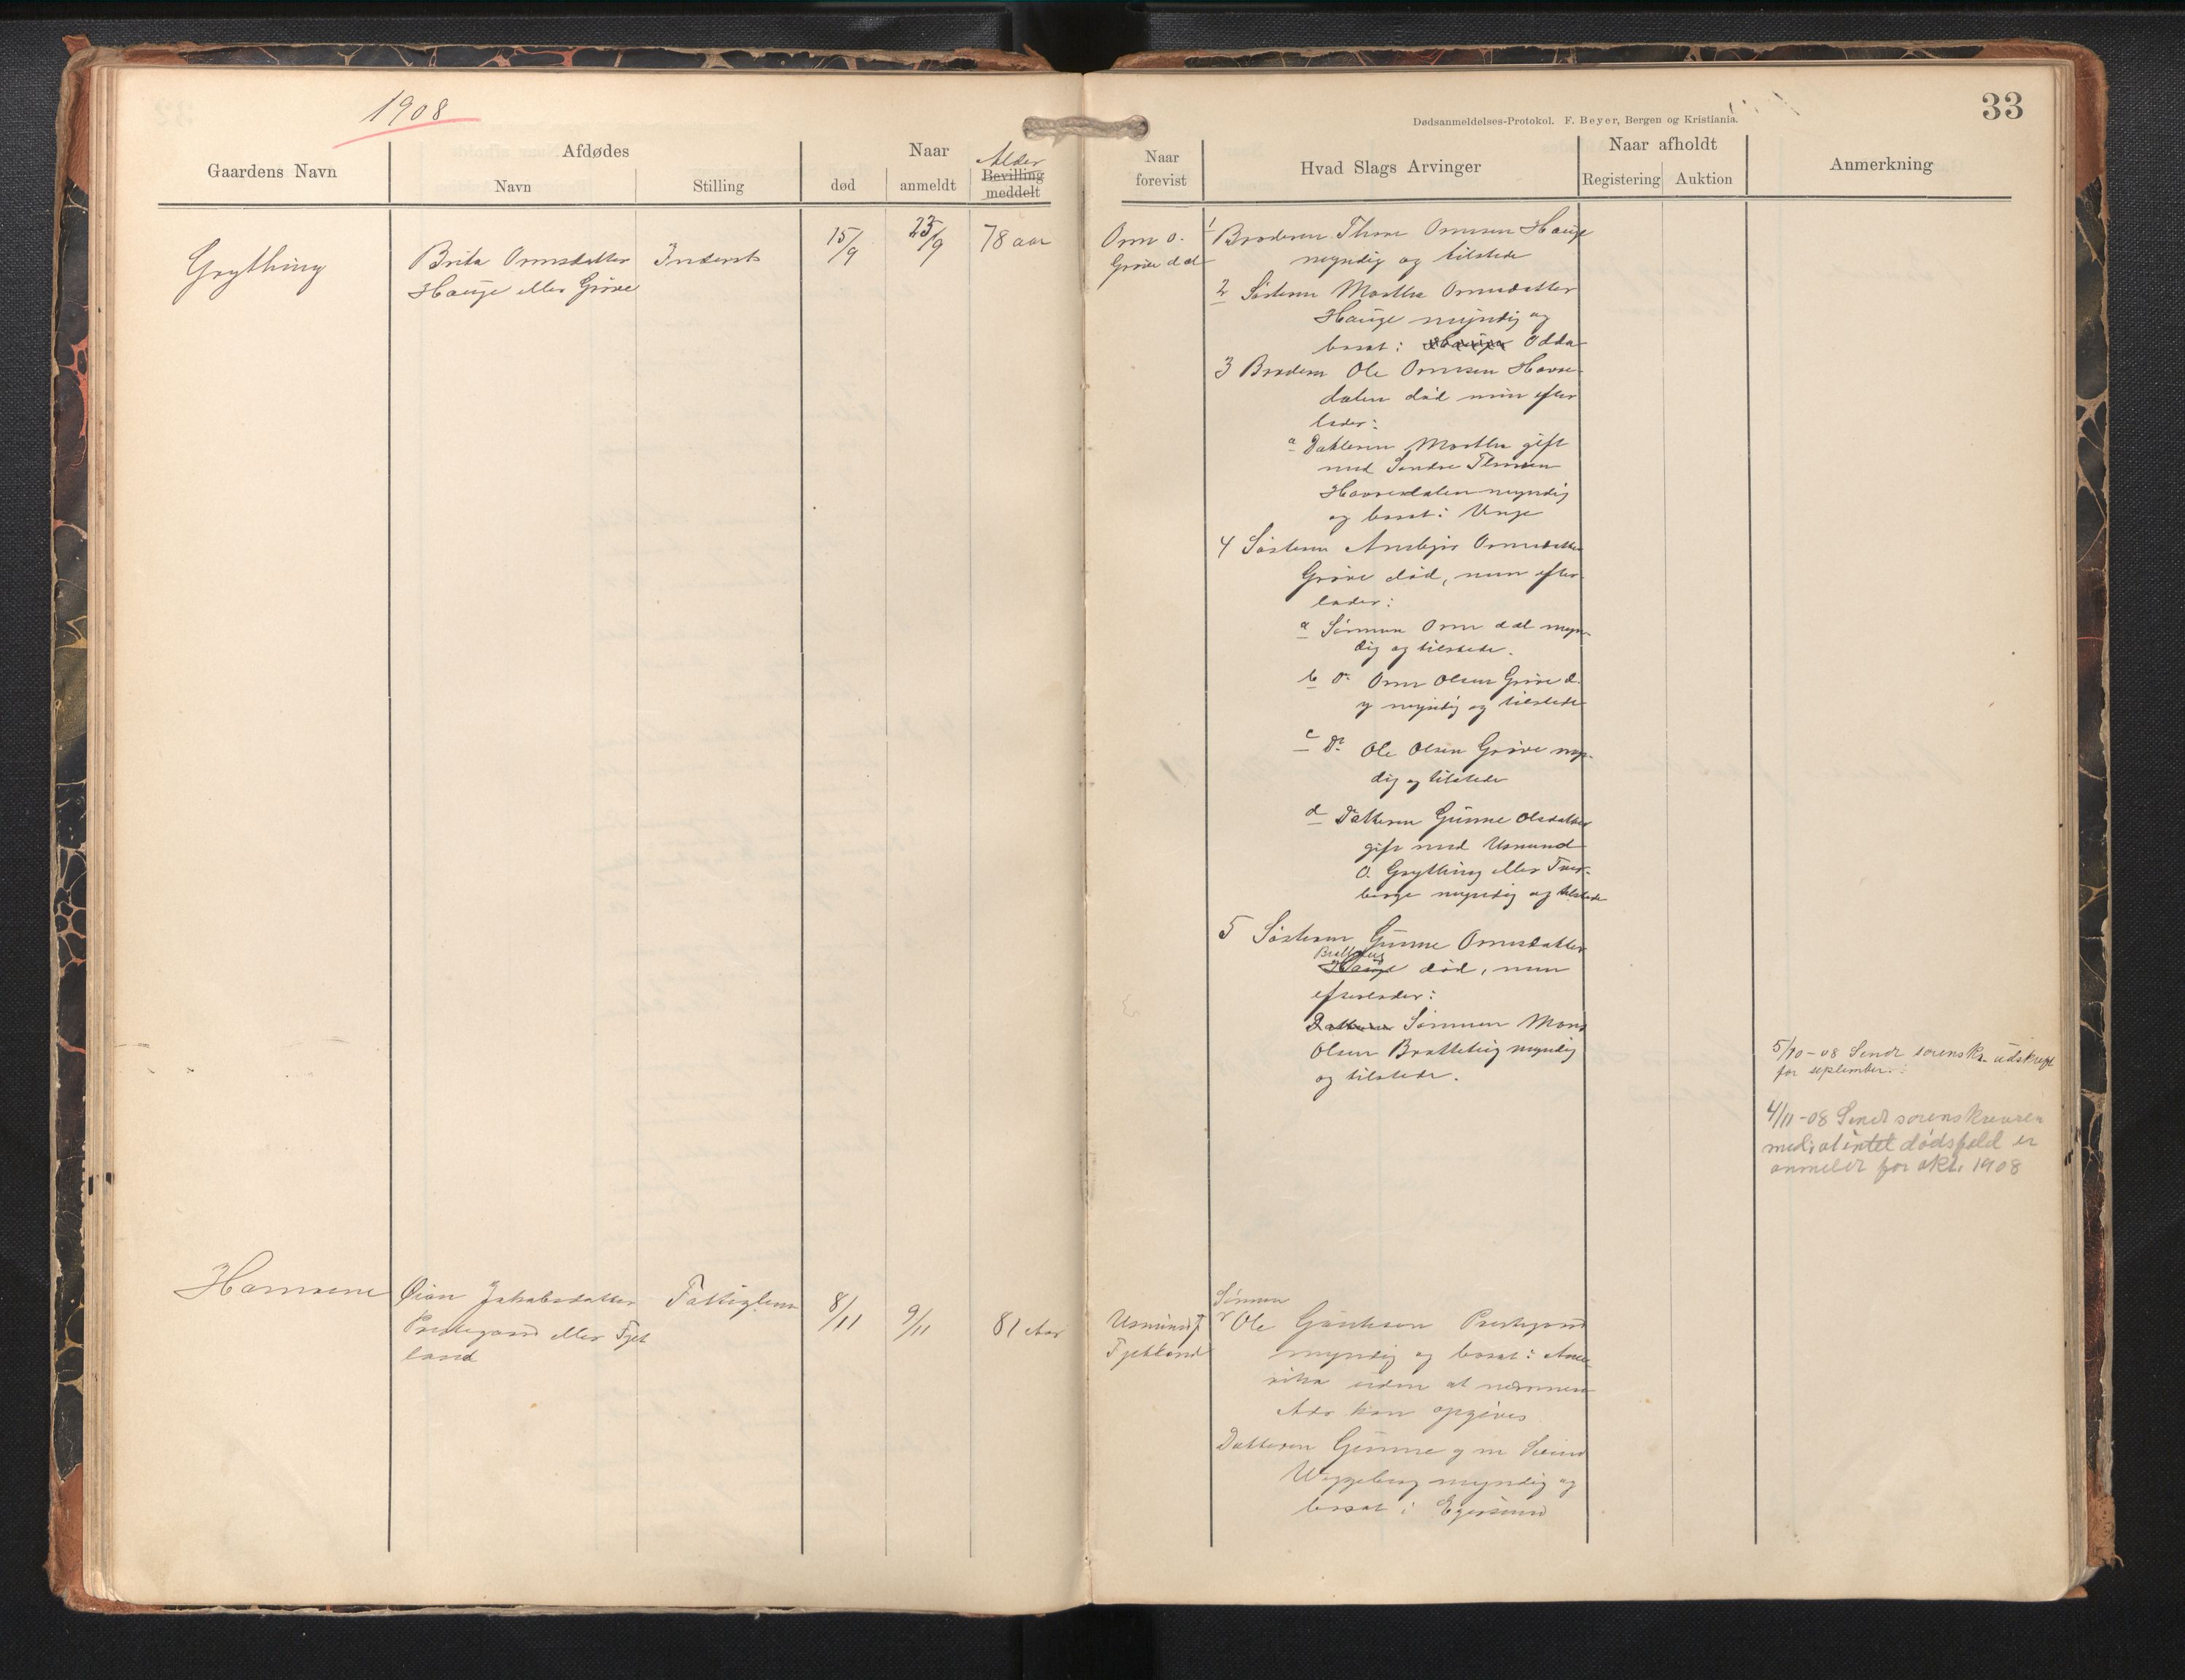 1908
33
Dødsanmeldelses-Protokol. F. Beyer, Bergen og Kristiania.
Gaardens Navn
Afdødes
Navn
Stilling
Naar
død
anmeldt
Alder
Bevilling
meddelt
Naar
forevist
Hvad Slags Arvinger
Naar afholdt
Registering
Auktion
Anmerkning
Grything
Brita Ormsdatter
Hauge eller Grøve
Inderst
15/9
23/9
78 aar
Orm O.
Grøve d æl
1 Broderen Thore Ormsen Hauge
myndig og tilstede
2 Søsteren Martha Ormsdatter
Hauge myndig og
bosat i Odda
3 Broderen Ole Ormsen Horre
dalen død men efter
lader:
a Datteren Martha gift
med Sondre Thorsen
Horredalen myndig
og bosat i
4 Søsteren Ormsdatter
Grøve død, men efter
lader:
a Sønnen Orm d æl myn-
dig og tilstede.
b Do Orm Olsen Grøve d.
y myndig og tilstede
c Do Ole Olsen Grøve myn-
dig og tilstede
d Datteren Gunne Olsdatter
gift med Asmund
O. Grything eller
myndig og tilstede
5 Søsteren Gunne Ormsdatter
Bratteteig
Hauge død, men
efterlader:
Datteren Sønnen Mons
Olsen Bratteteig myndig
og tilstede.
5/10-08 Sendt sorenskr. udskrift
for september.
4/11-08 Sendt sorenskriveren
med. at intet dødsfald er
anmeldt for okt. 1908
Jakobsdatter
Prestegaard eller Fjet
land
Fattiglem
8/11
9/11
81 Aar
Asmund
Fjetland
Sønnen
Ole Prestegaard
myndig og bosat i Ame-
rika uden at nærmere
Adr kan opgives
Datteren Gunne g m Svend
myndig og
bosat i Egersund